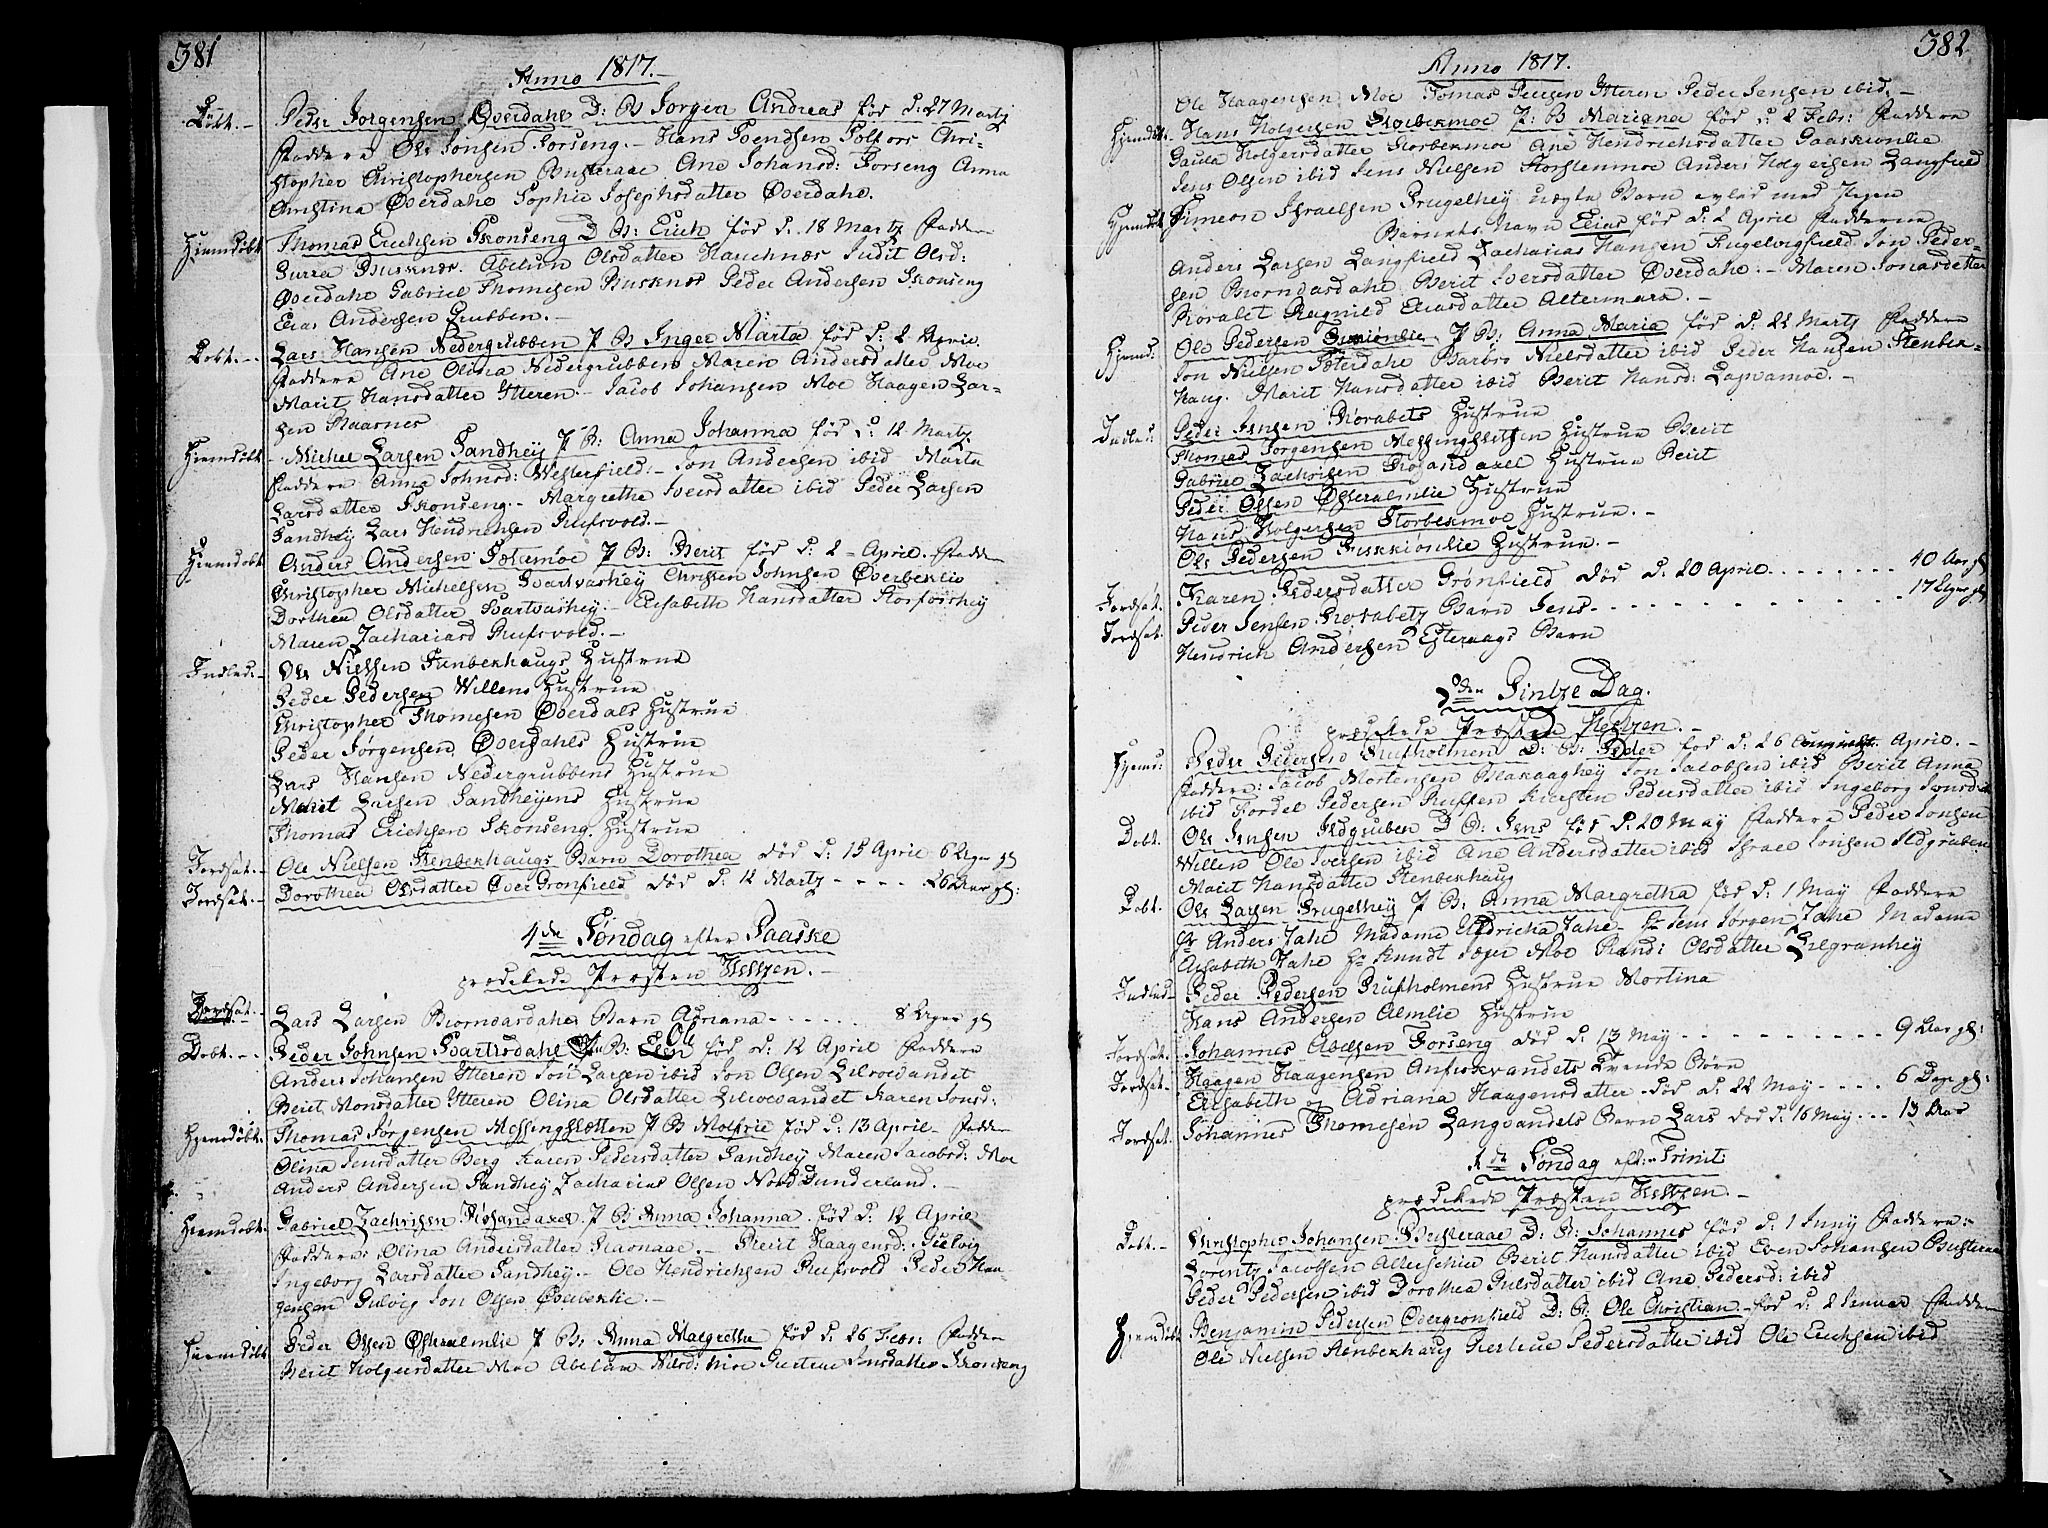 381
Anno 1817.
Döbt. Peder Jorgensen Øverdahl D: B: Jorgen Andreas för d: 27 Martz
Faddere Ole Jonsen Forseng. Hans Svendsen Selfors Chri-
stopher Christophersen Busteraae Ane Johansd: Forseng Anna
Christina Øverdahl Sophie Josephsdatter Øverdahl.
Hiemdöbt Thomas Erichsen Skonseng D B: Erich för d: 18 Martz Fadder
Burra Busknæs. Abelun Olsdatter Hauchnæs Judit Olsd:
Øverdahl Gabriel Thomesen Busknes Peder Andersen Skonseng
Elias Andersen Grubben.
Dobt. Lars Hansen Nedergrubben P B Inger Marta för d: 2 April.
Faddere Ane Olina Nedergrubben Maren Andersdatter Moe
Marit Hansdatter Ytteren. Jacob Johansen Moe Haagen Lar-
sen Raanes
Hiemdöbt Michel Larsen Sandhey P B: Anna Johanna för d: 12 Martz.
Faddere Anna Johnsd: Westerfield. Jon Andersen ibid Marta
Larsdatter Skonseng. Margrethe Iversdatter ibid Peder Larsen
Sandhey Lars Hendrichsen Rufsvold.
Hiemdobt Anders Andersen P B: Berit för d: 2 April. Fadder
Christopher Michelsen Svartvashey Christen Johnsen Øverbeklie
Dorthea Olsdatter Svartvashey. Elisabeth Hansdatter Storforshey
Maren Zachariasd Rufsvold.
Indled: Ole Nielsen Stenbekhaugs Hustrue
Peder Pedersen Willens Hustrue
Christopher Thomesen Øverdals Hustrue
Peder Jørgensen Øverdahls Hustrue
Lars Hansen Nedergrubbens Hustrue
Michel Larsen Sandheyens Hustrue
Thomas Erichsen Skonseng Hustrue
Jordsat. Ole Nielsen Stenbekhaugs Barn Dorothea död d: 15 April 6 Uger gl
Jordsat. Dorothea Olsdatter Øver Gronfield död d: 12 Martz - - - - 26 Aar gl:
4de Söndag efter Paaske
prædikede Provsten Heltzen.
Jordsat. Lars Larsen Biorndasdahls Barn Adriana - - - - - 8 Uger gl
Dobt. Peder Johnsen Svartisdahl B: Ole för d: 12 April Faddere
Anders Johansen Ytteren Jon Larsen ibid Jon Olsen Lilroevandet
Berit Monsdatter Ytteren Olina Olsdatter Lilroevandet Karen Jonsd:
Hjemdöbt. Thomas Jörgensen Messingsletten P B Molfrie för d: 13 April. Fadder
Olina Jensdatter Berg Karen Pedersdatter Sandhey Maren Jacobsd: Moe
Anders Andersen Sandhey Zacharias Olsen Nord Dunderland.
Hiemdobt Gabriel Zachrisen Røsandaxel P B Anna Johanna. för d: 12 April
Faddere: Olina Andersdatter Berit Haagensd: Gulvig
Ingeborg Larsdatter Sandhey. Ole Hendrichsen Rufsvold Peder Haa-
gensen Gulvig Jon Olsen Øverbeklie.
Hiemdöbt Peder Olsen Østeralmlie P B: Anna Margretha för d: 26 Febr: Fadder
Berit Holgersdatter Moe Abelum Nilsd: Moe Jensdatter Skonseng
382
Anno 1817.
Ole Haagensen Moe Tomas Ytteren Peder Jensen ibid.
Hjemdöbt. Hans Holgersen Storbekmoe P: B Mariana för d: 2 Febr: Faddere
Gaula Holgersdatter Storbekmoe Ane Hendrichsdatter Gaaskionlie
Jens Olsen ibid Jens Nielsen Anders Holgersen Langfield
Hjemdobt Simeon Israelsen Brugelhey uægte Barn avled med Pigen
Barnets Navn Elias för d: 2 April Fadderne
Anders Larsen Langfield Zacharias Hansen Jon Peder-
sen Biorndasdahl Berit Iversdatter Øverdahl. Maren Jonasdatter
Røvalet Ragnild Eliasdatter Altermark.
Hjemd: Ole Pedersen P B: Anna Maria för d: 22 Martz Faddere
Jon Nielsen Barbro Nielsdatter ibid Peder Hansen Stenbek-
haug. Marit Hansdatter ibid Berit Hansd:
Indled: Peder Jensen Hustrue
Thomas Jorgensen Messingsletten Hustrue Berit
Gabriel Zachrisen Røsandaxel Hustrue Berit
Peder Olsen Østeralmlie Hustrue
Hans Holgersen Storbekmoe Hustrue.
Ole Pedersen Hustrue.
Jordsat. Karen Pedersdatter Grönfield död d: 20 April. - - - - - - - 40 Aar gl
Jordsat. Peder Jensen Barn Jens - - - - - - - - 17 Uger gl
Hendrich Andersen Barn
2den Pintze Dag.
prædikede Provsten Heltzen.
Hjemd: Peder Pedersen Rufsholmen D: B: Peder föd d: 26 April.
Faddere: Jacob Mortensen Blakaaghey Jon Jacobsen ibid Berit Anna
ibid Fordel Pedersen Ruffen Kirsten Pedersdatter ibid Ingeborg Jonsd
Dobt. Ole Jensen Ildgruben D B: Jens för d: 20 May Faddere Peder Jonsen
Willen Ole Iversen ibid Ane Andersdatter ibid Israel Jonsen Ildgruben
Marit Hansdatter Stenbekhaug
Dobt. Ole Larsen Brugelhey P B: Anna Margretha för d: 1 May Faddere
Hr Anders Jahe Madame Uldricka Jahe. Hr Jens Jorgen Jahe Madame
Elisabeth Jahe Hr Knudt Moe Rand: Olsdatter Lilgranhey
Indled. Peder Pedersen Rufsholmens Hustrue Mortina
Hans Andersen Almlie Hustrue
Jordsat. Johannes Abelsen Forseng död d: 13 May - - - - - - 9 Aar gl:
Jordsat. Haagen Haagensen Tvende Börn
Elisabeth og Adriana Haagensdatter död d: 22 May - - - - 6 Dage gl:
Jordsat. Johannes Thomesen Langvandets Barn Lars död d: 16 May - - - 13 Aar
1de Söndag eft: Trinit
prædikede Provsten Heltzen.
Dobt. Christopher Johansen Busteraae D: B: Johannes för d: 1 Juny Faddere:
Lorentz Jacobsen Berit Hansdatter ibid Even Johansen Busteraae
Peder Pedersen ibid Dorothea ibid Ane Pedersd: ibid
Hjemdöbt Benjamin Pedersen Ødergronfield D: B: Ole Christian. för d: 2 Januar Faddere
Ole Nielsen Stenbekhaug Pedersdatter ibid Ole Erichsen ibid